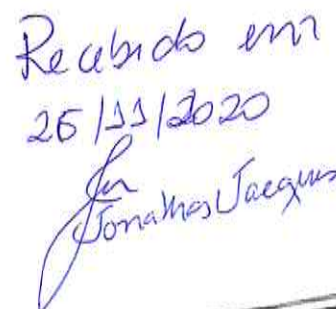 Recebido em
26/11/2020
Jonathas Jacques